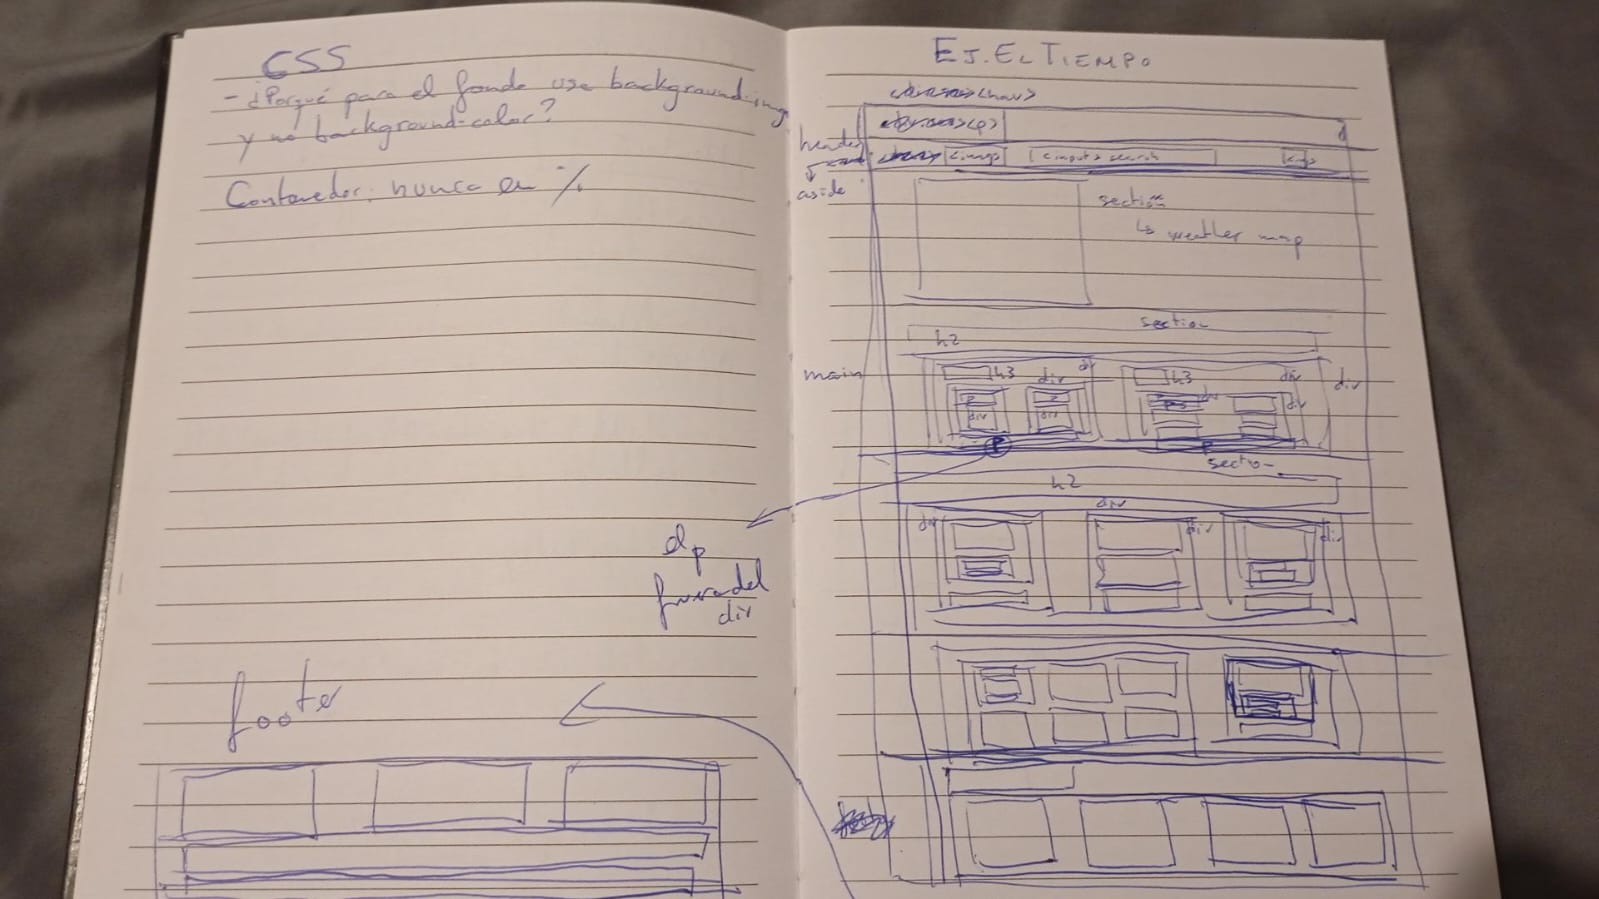 CSS
- ¿Porqué para el fondo use background-img
y no background-color?
Contenedor: nunca en %
el p
fuera del
div
footer
EJ. EL TIEMPO
<nav>
<p>
header
<img> <input> search <img>
aside
section
↳ weather map
section
h2
main
h3 div div h3 div div
div div div div
P P
section
h2
div
div div div